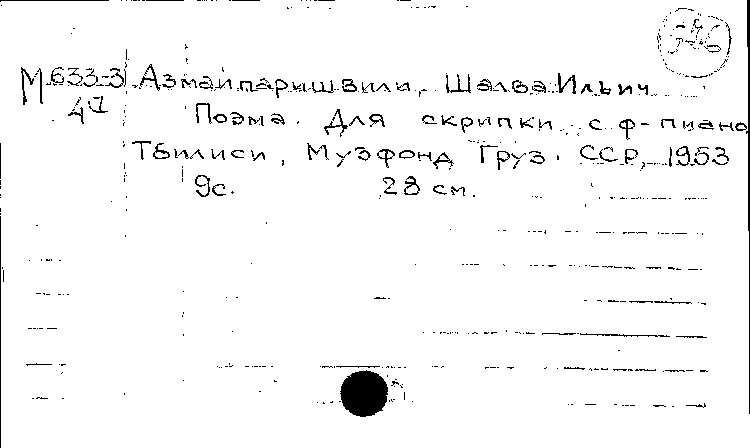 М 633-3 Азмайпаришвили, Шалва Ильич
Поэма. Для скрипки с ф-пиано
Тбилиси, Музфонд Груз. ССР, 1953
9с. 28 см.